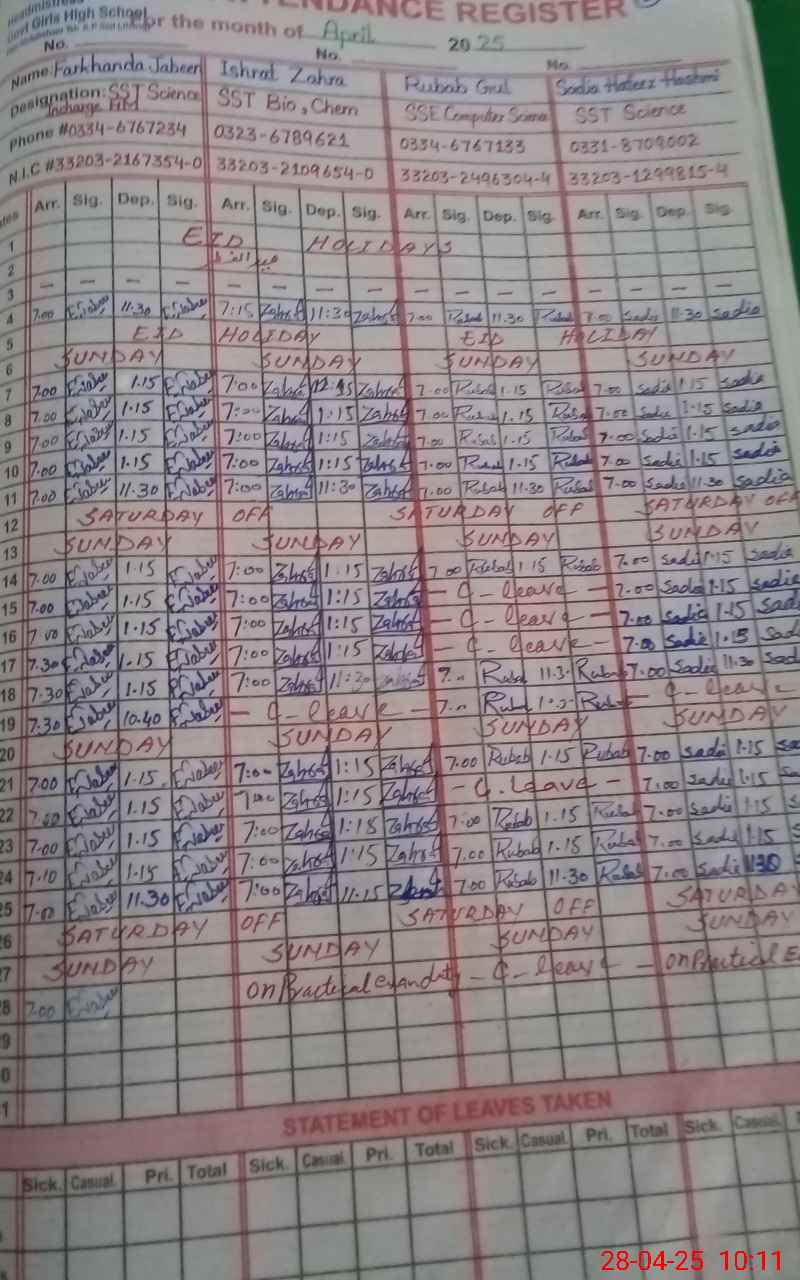 ATTENDANCE REGISTER
Govt Girls High School
For the month of April 2025
No. No. No
Name: Farkhanda Jabeen Ishrat Zahra Rubab Gul Sadia Hafeez Hashmi
Designation: SST Science SST Bio, Chem SSE Computer Science SST Science
Incharge HM
Phone #0334-6767234 0323-6789621 0334-6767133 0331-8709002
N.I.C #33203-2167354-0 33203-2109654-0 33203-2496304-4 33203-1299815-4
Arr. Sig. Dep. Sig. Arr. Sig. Dep. Sig. Arr. Sig. Dep. Sig. Arr. Sig. Dep. Sig.
1 EID HOLIDAYS
2
3 — — — — — — — — — — — — — — — —
4 7.00 EJabee 11.30 EJabee 7:15 Zahra 11:30 Zahra 7.00 Rubab 11.30 Rubab 7.00 Sadia 11.30 Sadia
5 EID HOLIDAY EID HOLIDAY
6 SUNDAY SUNDAY SUNDAY SUNDAY
7 7.00 EJabee 1.15 EJabee 7:00 Zahra 12:45 Zahra 7.00 Rubab 1.15 Rubab 7.00 Sadia 1.15 Sadia
8 7.00 EJabee 1.15 EJabee 7:00 Zahra 1:15 Zahra 7.00 Rubab 1.15 Rubab 7.00 Sadia 1.15 Sadia
9 7.00 EJabee 1.15 EJabee 7:00 Zahra 1:15 Zahra 7.00 Rubab 1.15 Rubab 7.00 Sadia 1.15 Sadia
10 7.00 EJabee 1.15 EJabee 7:00 Zahra 1:15 Zahra 7.00 Rubab 1.15 Rubab 7.00 Sadia 1.15 Sadia
11 7.00 EJabee 11.30 EJabee 7:00 Zahra 11:30 Zahra 7.00 Rubab 11.30 Rubab 7.00 Sadia 11.30 Sadia
12 SATURDAY OFF SATURDAY OFF SATURDAY OFF
13 SUNDAY SUNDAY SUNDAY SUNDAY
14 7.00 EJabee 1.15 EJabee 7:00 Zahra 1:15 Zahra 7.00 Rubab 1.15 Rubab 7.00 Sadia 1.15 Sadia
15 7.00 EJabee 1.15 EJabee 7:00 Zahra 1:15 Zahra - C - leave - 7.00 Sadia 1.15 Sadia
16 7.00 EJabee 1.15 EJabee 7:00 Zahra 1:15 Zahra - C - leave - 7.00 Sadia 1.15 Sad
17 7.30 EJabee 1.15 EJabee 7:00 Zahra 1:15 Zahra - C - leave - 7.00 Sadia 1.15 Sad
18 7.30 EJabee 1.15 EJabee 7:00 Zahra 11:30 Zahra 7.. Rubab 11.3. Rubab 7.00 Sadia 11.30 Sad
19 7.30 EJabee 10.40 EJabee - C - leave - 7.. Rubab Rubab - C - leave
20 SUNDAY SUNDAY SUNDAY SUNDAY
21 7.00 EJabee 1.15 EJabee 7:00 Zahra 1:15 Zahra 7.00 Rubab 1.15 Rubab 7.00 Sadia 1.15 Sa
22 7.00 EJabee 1.15 EJabee 7:00 Zahra 1:15 Zahra - C. Leave - 7.00 Sadia 1.15 Sa
23 7.00 EJabee 1.15 EJabee 7:00 Zahra 1:15 Zahra 7:00 Rubab 1.15 Rubab 7.00 Sadia 1.15 S
24 7.10 EJabee 1.15 EJabee 7:00 Zahra 1:15 Zahra 7.00 Rubab 1.15 Rubab 7.00 Sadia 1.15
25 7.00 EJabee 11.30 EJabee 7:00 Zahra 11.15 Zahra 7.00 Rubab 11.30 Rubab 7.00 Sadia 1130
26 SATURDAY OFF SATURDAY OFF SATURDA
27 SUNDAY SUNDAY SUNDAY SUNDAY
28 7.00 EJabee on Practical exam duty - C - leave - on Practical E
9
0
1
STATEMENT OF LEAVES TAKEN
Sick. Casual. Pri. Total Sick. Casual Pri. Total Sick. Casual. Pri. Total Sick. Casual.
28-04-25 10:11